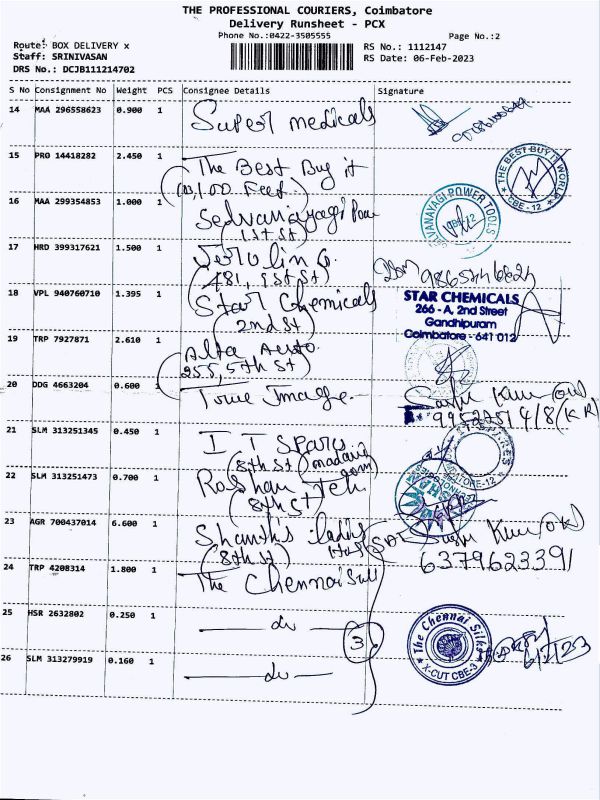 THE PROFESSIONAL COURIERS, Coimbatore
Delivery Runsheet - PCX
Phone No.:0422-3505555
Page No.:2
Route: BOX DELIVERY x
RS No.: 1112147
Staff: SRINIVASAN
RS Date: 06-Feb-2023
DRS No.: DCJB111214702
S No Consignment No Weight PCS Consignee Details Signature
14 MAA 296558623 0.900 1 Super medicals
15 PRO 14418282 2.450 1 The Best Buy it
(100, 100 Feet)
THE BEST BUY IT WORLD
CBE - 12
16 MAA 299354853 1.000 1
1st St)
VANAYAGI POWER TOOLS
17 HRD 399317621 1.500 1
(481, 1st St)
18 VPL 940760710 1.395 1 Star Chemicals
(2nd St)
STAR CHEMICALS
266 - A, 2nd Street
Gandhipuram
Coimbatore - 641 012
19 TRP 7927871 2.610 1 Alta Auto
255, 5th St)
20 DDG 4663204 0.600 1 True Image
21 SLM 313251345 0.450 1 I T Spares
(8th St)
22 SLM 313251473 0.700 1 Roshan Teh
(8th St)
23 AGR 700437014 6.600 1 Shanthi's ladies
(8th St)
6379623391
24 TRP 4208314 1.800 1 The Chennai Silk
25 HSR 2632802 0.250 1 do
3
The Chennai Silks
X-CUT CBE-3
6/2/23
26 SLM 313279919 0.160 1 do